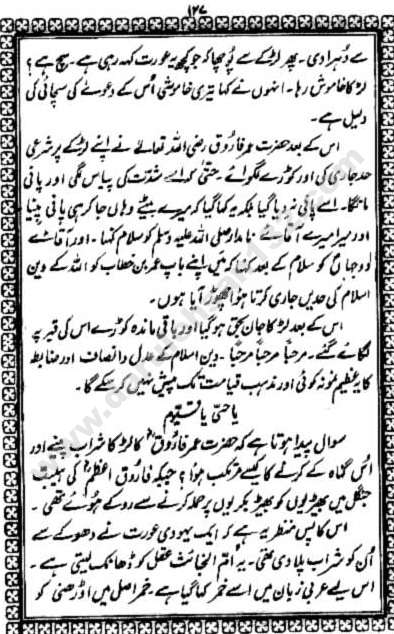 ۱۲۷
ے دُہرا دی۔ پھر لڑکے سے پُوچھا کہ جو کچھ یہ عورت کہہ رہی ہے۔ سچ ہے؟
لڑکا خاموش رہا۔ انہوں نے کہا تیری خاموشی اُس کے دعوے کی سچائی کی
دلیل ہے۔
اس کے بعد حضرت عمر فاروق رضی اللہ تعالے نے اپنے لڑکے پر شرعی
حد جاری کی اور کوڑے لگوائے۔ حتیٰ کہ اسے شدّت کی پیاس لگی اور پانی
مانگا۔ اسے پانی نہ دیا گیا بلکہ یہ کہا گیا کہ میرے بیٹے وہاں جا کر ہی پانی پینا
اور میرا میرے آقائے نامدار صلی اللہ علیہ وسلم کو سلام کہنا۔ اور آقائے
دوجہاں کو سلام کے بعد کہنا کہ میں اپنے باپ عمر بن خطاب کو اللہ کے دین
اسلام کی حدیں جاری کرتا ہوا چھوڑ آیا ہوں۔
اس کے بعد لڑکا جان بحق ہو گیا اور باقی ماندہ کوڑے اس کی قبر پہ
لگائے گئے۔ مرحباً مرحباً مرحباً۔ دین اسلام کے عدل و انصاف اور ضابطہ
کا یہ عظیم نمونہ کوئی اور مذہب قیامت تک پیش نہیں کر سکے گا۔
یا حیّ یا قیّوم
سوال پیدا ہوتا ہے کہ حضرت عمر فاروقؓ کا لڑکا شراب پینے اور
اُس گناہ کے کرنے کا کیسے مرتکب ہُوا؟ جبکہ فاروق اعظمؓ کی ہیبت
جنگل میں بھیڑیوں کو بھیڑ بکریوں پر حملہ کرنے سے روکے ہوئے تھی۔
اس کا پس منظر یہ ہے کہ ایک یہودی عورت نے دھوکے سے
اُن کو شراب پلا دی تھی۔ یہ اُمّ الخبائث عقل کو ڈھانک لیتی ہے۔
اس لیے عربی زبان میں اسے خمر کہا گیا ہے۔ خمر اصل میں اوڑھنی کو